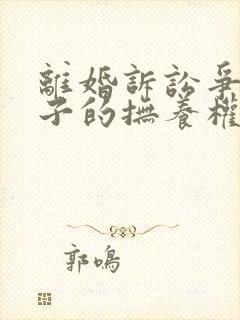 離婚訴訟爭
子的撫養權
郭鳴